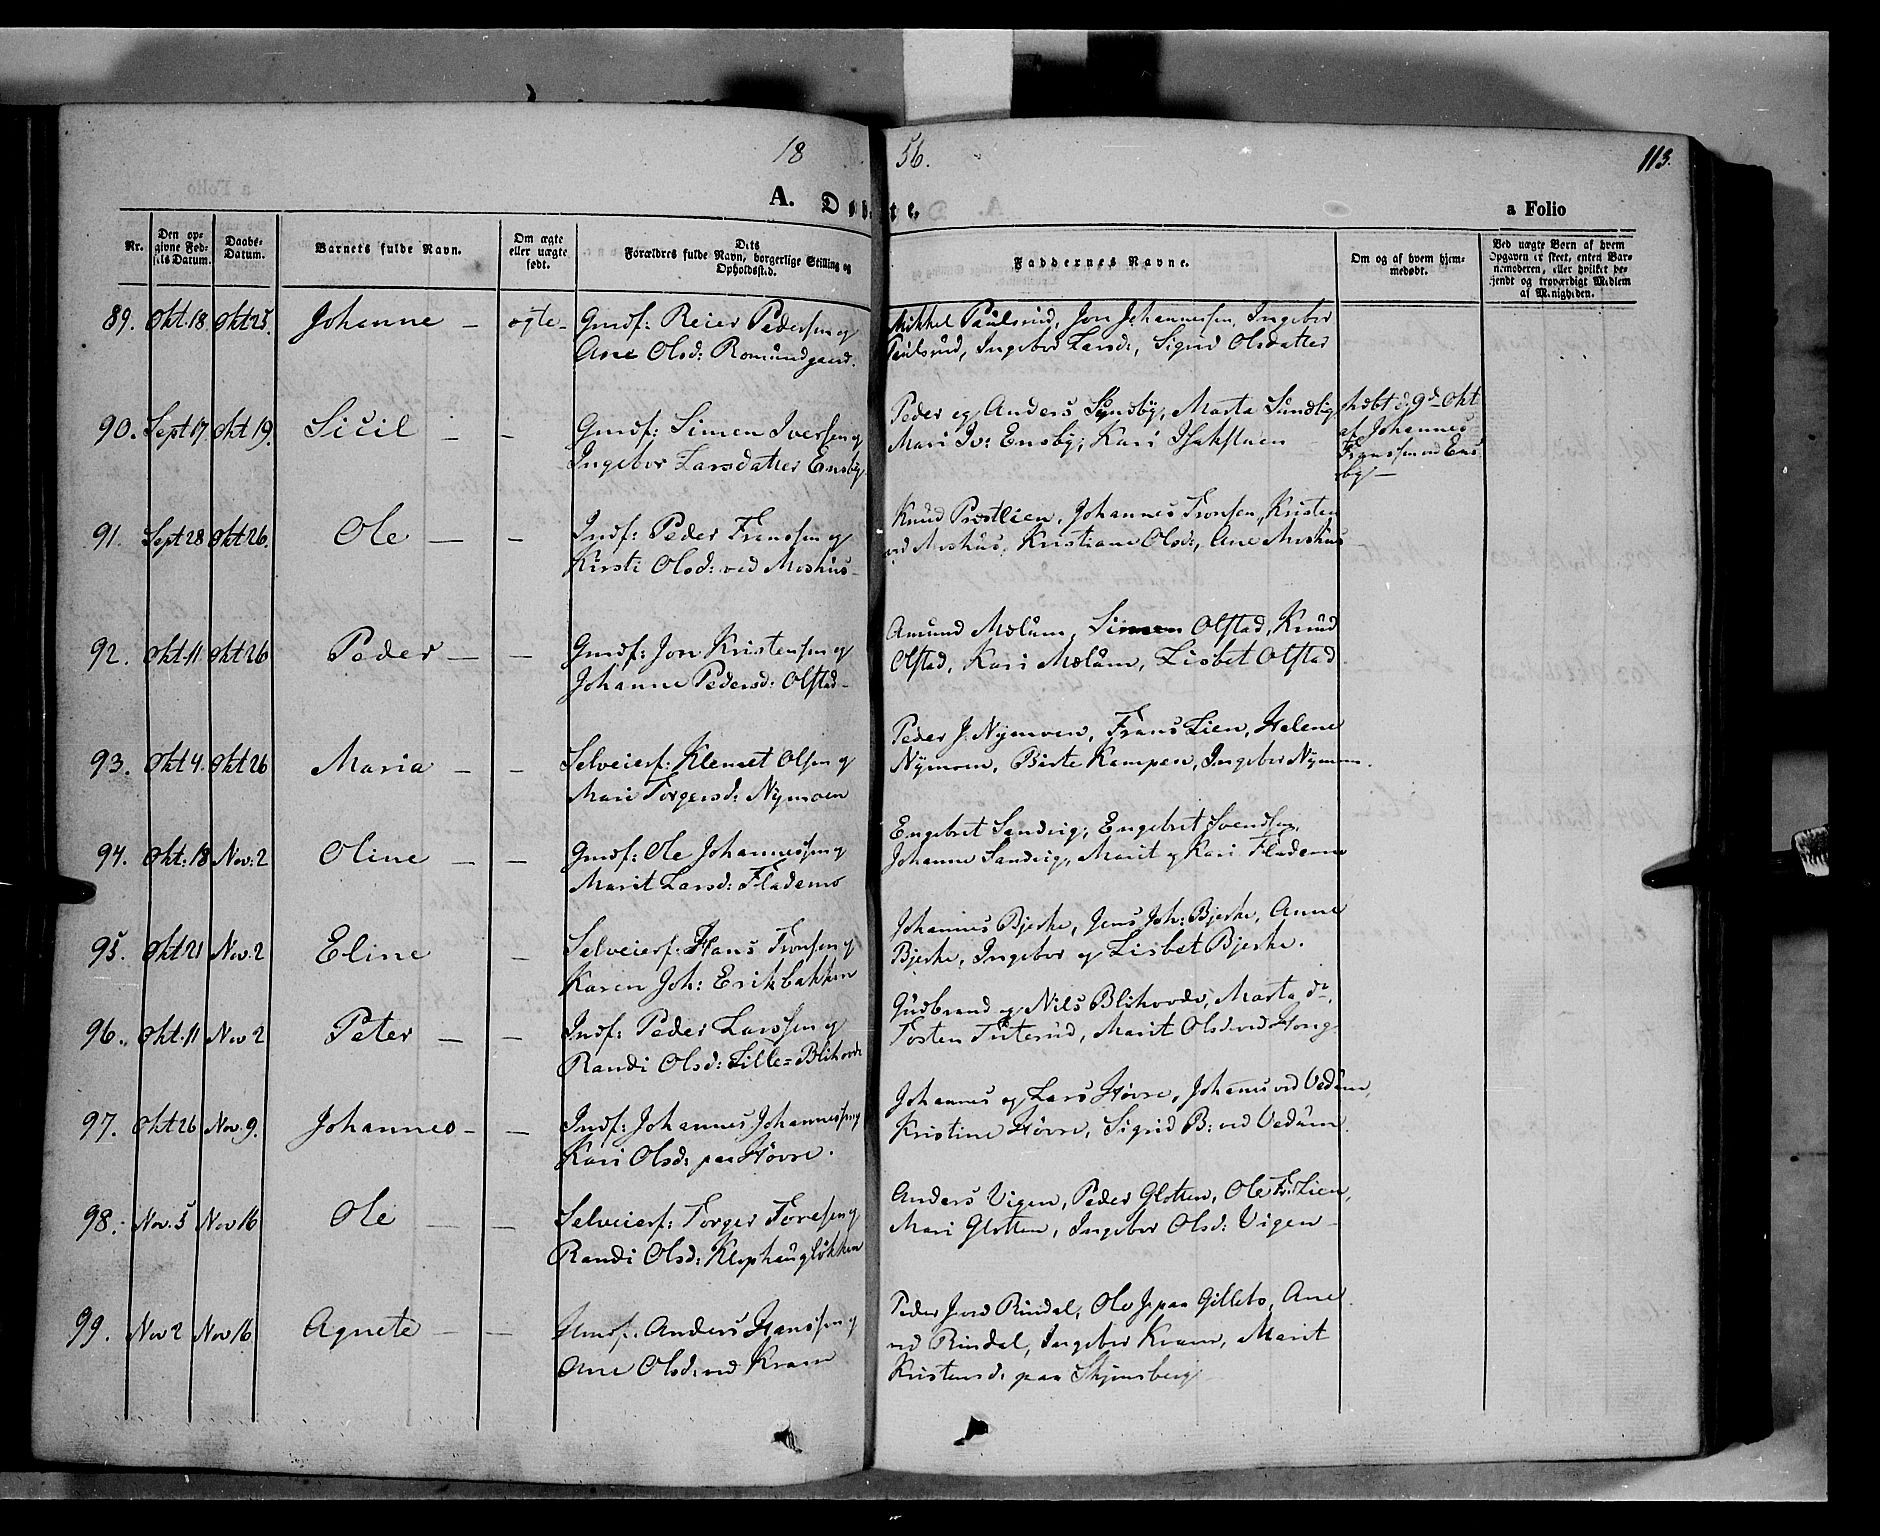 18 56. 113.
A. Døbte. a Folio
Nr. | Den opgivne Fødselsdatum. | Daabs-Datum. | Barnets fulde Navn. | Om ægte eller uægte født. | Forældres fulde Navn, borgerlige Stilling og Dets Opholdssted. | Faddernes Navne. | Om og af hvem hjemmedøbt. | Ved uægte Børn af hvem Opgaven er skeet, enten Barnemoderen, eller hvilket bekjendt og troværdigt Medlem af Menigheden.
89. Okt.18. Okt 25. Johanne – ægte – Gmdf: Reier Pedersen og Mikkel Paulsrud, Jon Johannessen, Ingebor
Ane Olsd: Romundgaard. Paulsrud, Ingebor Larsd:, Sigrid Olsdatter
90. Sept 17 Okt 19. Sicil – – Gmdf: Simen Iversen og Peder og Anders Synsby, Marta Sundby hdøbt d. 9d Okt
Ingebor Larsdatter Ensby Mari Iv: Ensby, Kari Isakstuen af Johannes
Fransen vd Ens-
by –
91. Sept 28 Okt 26. Ole – – Indf: Peder Fransen og Knud Prestlien, Johannes Tronsen, Kristen
Kirsti Olsd: ved Moshus – ved Moshus, Kristiane Olsd:, Ane Moshus
92. Okt. 11 Okt 26 Peder – – Gmdf: Jon Kristensen og Amund Mælum, Simen Olstad, Knud
Johanne Pedersd: Olstad – Olstad, Kari Mælum, Lisbet Olstad
93. Okt 4. Okt 26 Maria – – Selveierf: Klemet Olsen og Peder J. Nymoen, Frans Lien, Helene
Mari Torgersd: Nymoen Nymoen, Birte Kampen, Ingebor Nymoen.
94. Okt. 18 Nov. 2 Oline – – Gmdf: Ole Johannessen og Engebret Sandvig, Engebrit Svendsen,
Marit Larsd: Flademo Johanne Sandvig, Marit og Kari Flademo
95. Okt 21 Nov. 2 Eline – Selveierf: Hans Tronsen og Johannes Bjerke, Jens Joh: Bjerke, Anne
Karen Joh: Erikbakken Bjerke, Ingebor og Lisbet Bjerke.
96. Okt. 11 Nov 2 Peter – – Indf: Peder Larssen og Gudbrand og Nils Blihovde, Marta do,
Randi Olsd: Lille=Blihovde Tosten Tuterud, Marit Olsd vd Hong
97. Okt 26 Nov. 9. Johannes – – Indf: Johannes Johannessen og Johannes og Lars Høvre, Johannes vd Vedum,
Kari Olsd: paa Høvre. Kristine Høvre, Sigrid B: vd Vedum.
98. Nov. 5 Nov 16 Ole – – Selveierf: Torger Toresen og Anders Vigen, Peder Glotten, Ole Fr: Lien,
Randi Olsd: Klophaugløkken Mari Glotten, Ingebor Olsd: Vigen –
99. Nov 2 Nov 16 Agnete – – Gmdf: Anders Hanssen og Peder J vd Rindal, Ole J. paa Gillebo, Ane
Ane Olsd: vd Kram vd Rindal, Ingebor Kram, Marit
Kristensd: paa Skjønsberg